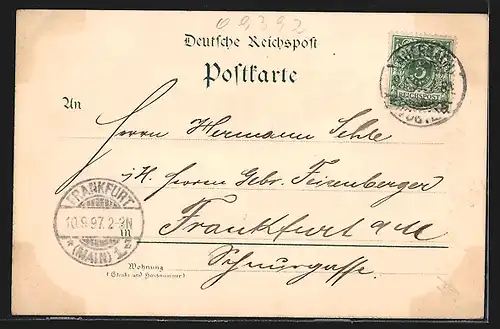 09392
Deutsche Reichspost
Postkarte
REICHSPOST
An
Herrn Hermann Sehle
i/H. Herren Gebr. Feisenberger
FRANKFURT
10.9.97. 2-3N
* (MAIN) 1
in
Frankfurt a/M
Schnurgasse.
Wohnung
(Straße und Hausnummer)